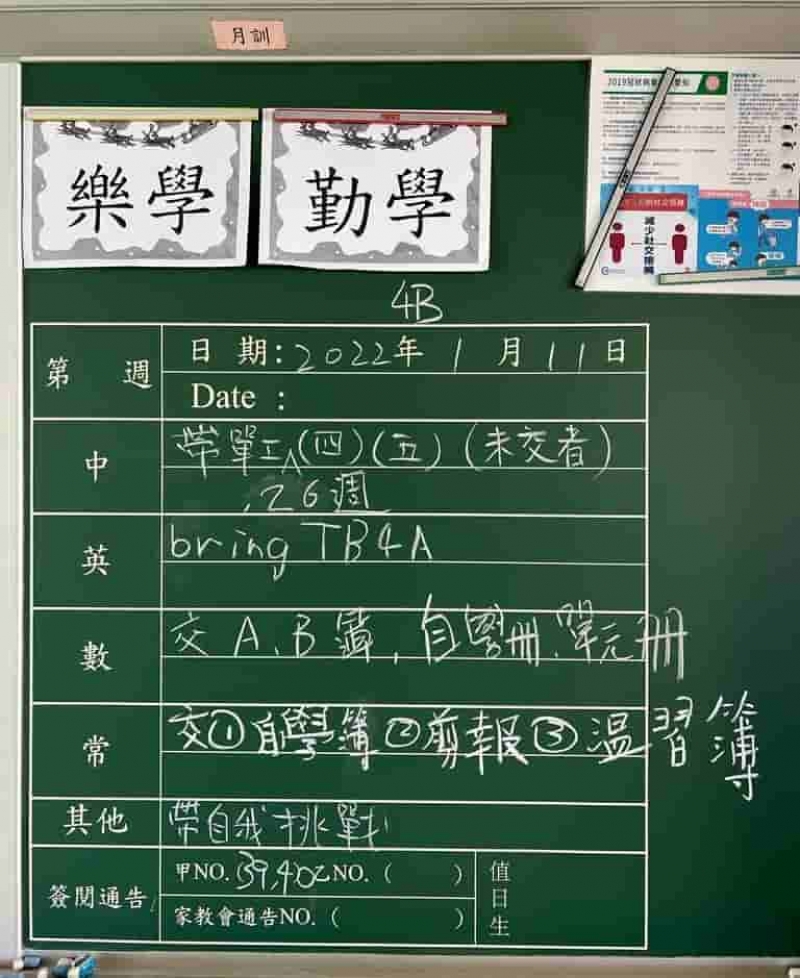 月訓
樂學
勤學
減少社交接觸
4B
第 週
日 期:2022年 1 月 11 日
Date :
中
帶單工(四)(五)(未交者)
,26週
英
bring TB4A
數
交 A、B 簿,自學冊、單元冊
常
交①自學簿②剪報③温習簿
其他
帶自我挑戰
簽閱通告
甲NO.(39,40乙NO.( )
家教會通告NO.( )
值日生